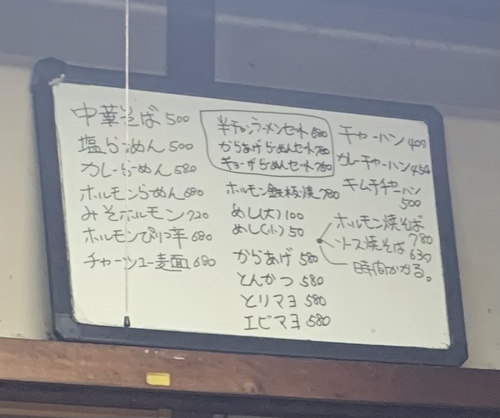 中華そば 500
塩らーめん 500
カレーらーめん 580
ホルモンらーめん 680
みそホルモン 720
ホルモンぴり辛 680
チャーシュー麺 680
半チャンラーメンセット 680
からあげらーめんセット 780
チャーザらーめんセット 780
ホルモン鉄板焼 780
めし(大) 100
めし(小) 50
からあげ 580
とんかつ 580
とりマヨ 580
エビマヨ 580
チャーハン 400
カレーチャーハン 450
キムチチャーハン
500
ホルモン焼そば
780
ソース焼そば
630
時間かかる。